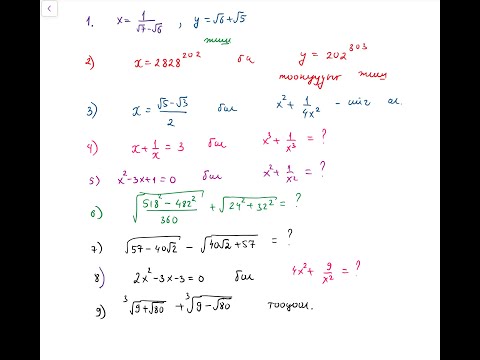 1. x = 1/(√7-√6) , y = √6+√5
жиш
2) x = 2828^202 ба y = 202^303
тоонуудыг жиш
3) x = (√5-√3)/2 бол x² + 1/(4x²) - ийг ол.
4) x + 1/x = 3 бол x³ + 1/x³ = ?
5) x²-3x+1=0 бол x² + 1/x² = ?
6) √((518² - 482²)/360) + √(24² + 32²) = ?
7) √(57 - 40√2) - √(40√2 + 57) = ?
8) 2x² - 3x - 3 = 0 бол 4x² + 9/x² = ?
9) ∛(9+√80) + ∛(9-√80) тооцоол.